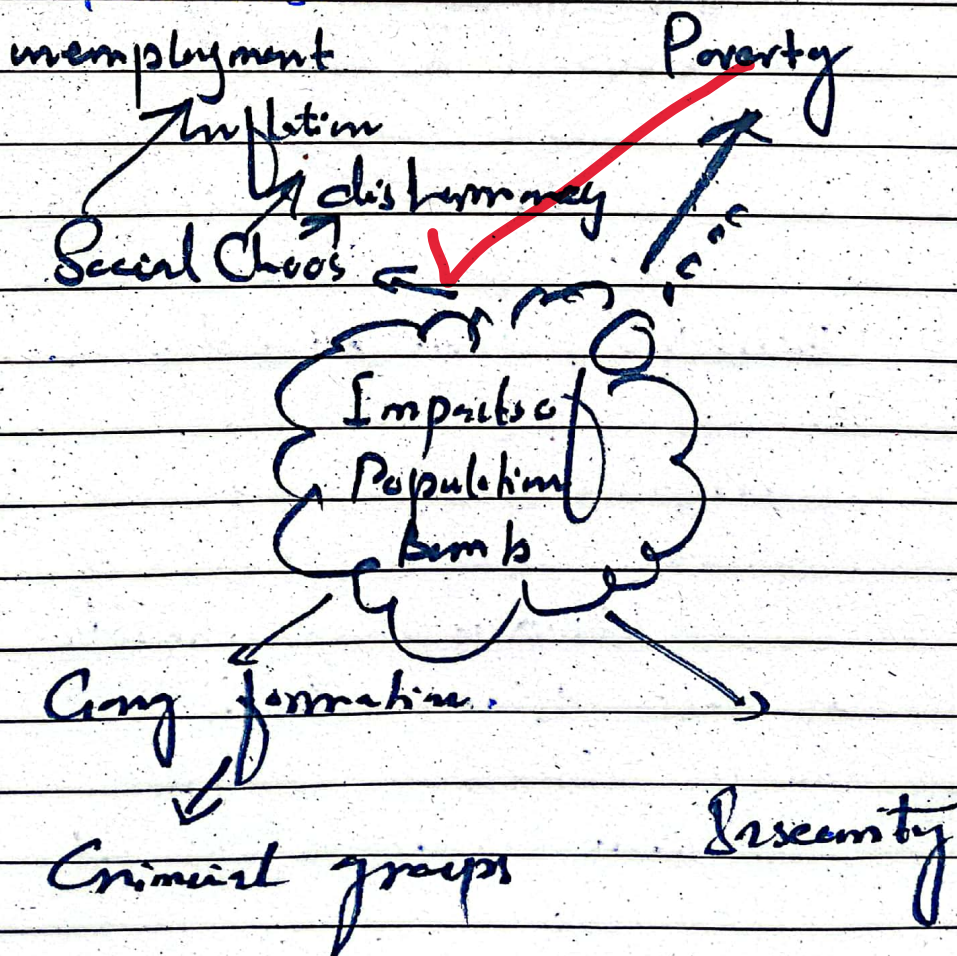 unemployment Poverty
Inflation
disharmony
Social Chaos
Impacts of
Population
Bomb
Gang formation.
Insecurity
Criminal groups